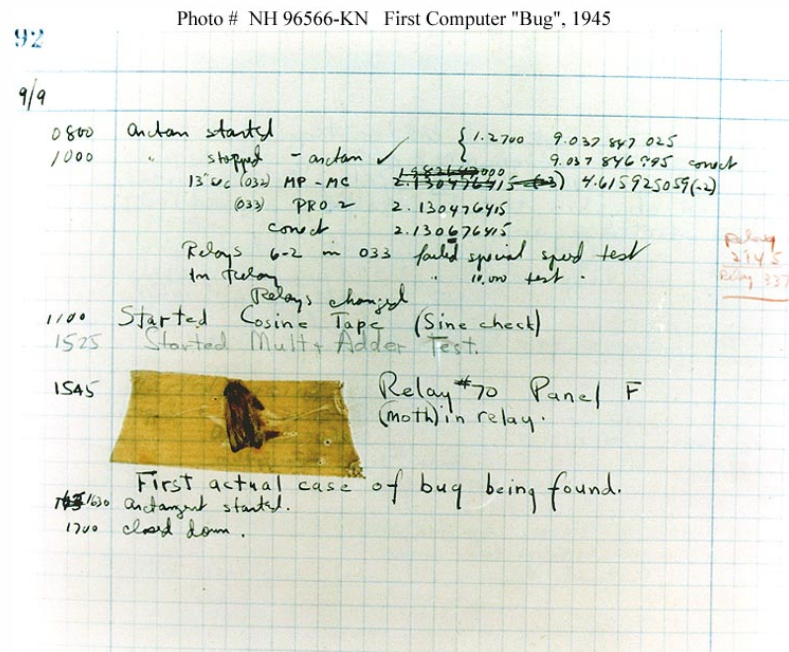 Photo # NH 96566-KN First Computer "Bug", 1945
92
9/9
0800 arctan started { 1.2700 9.037 847 025
1000 " stopped - arctan ✓ 9.037 846 995 correct
13" uc (032) MP - MC 2.130476415 (-3) 4.615925059(-2)
(033) PRO 2 2.130476415
correct 2.130676415
Relays 6-2 in 033 failed special speed test
In Relay " 10,000 test .
Relays changed
Relay
2145
Relay 337
1100 Started Cosine Tape (Sine check)
1525 Started Mult + Adder Test.
1545 Relay #70 Panel F
(moth) in relay.
First actual case of bug being found.
1630 arctangent started.
1700 closed down.